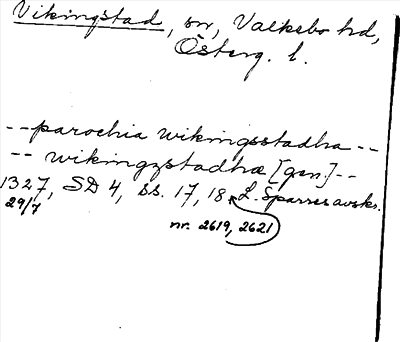 Vikingstad, sn, Valkebo hd,
Österg. l.
--parochia wikingsstadha--
-- wikingzstadhæ [gen.]--
1327, SD 4, ss. 17, 18 L. Sparres avskr.
29/7
nr. 2619, 2621